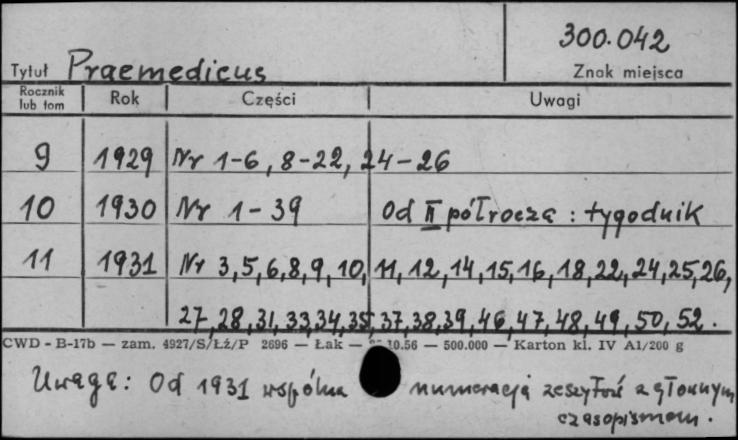 300.042
Tytuł Praemedicus Znak miejsca
Rocznik lub tom Rok Części Uwagi
9 1929 Nr 1-6, 8-22, 24-26
10 1930 Nr 1-39 Od II półrocza: tygodnik
11 1931 Nr 3,5,6,8,9,10,11,12,14,15,16,18,22,24,25,26,
27,28,31,33,34,35,37,38,39,46,47,48,49,50,52.
CWD - B-17b — zam. 4927/S/Łź/P 2696 — Łak — 10.56 — 500.000 — Karton kl. IV A1/200 g
Uwaga: Od 1931 wspólna numeracja zeszytów z głównym
czasopismem.